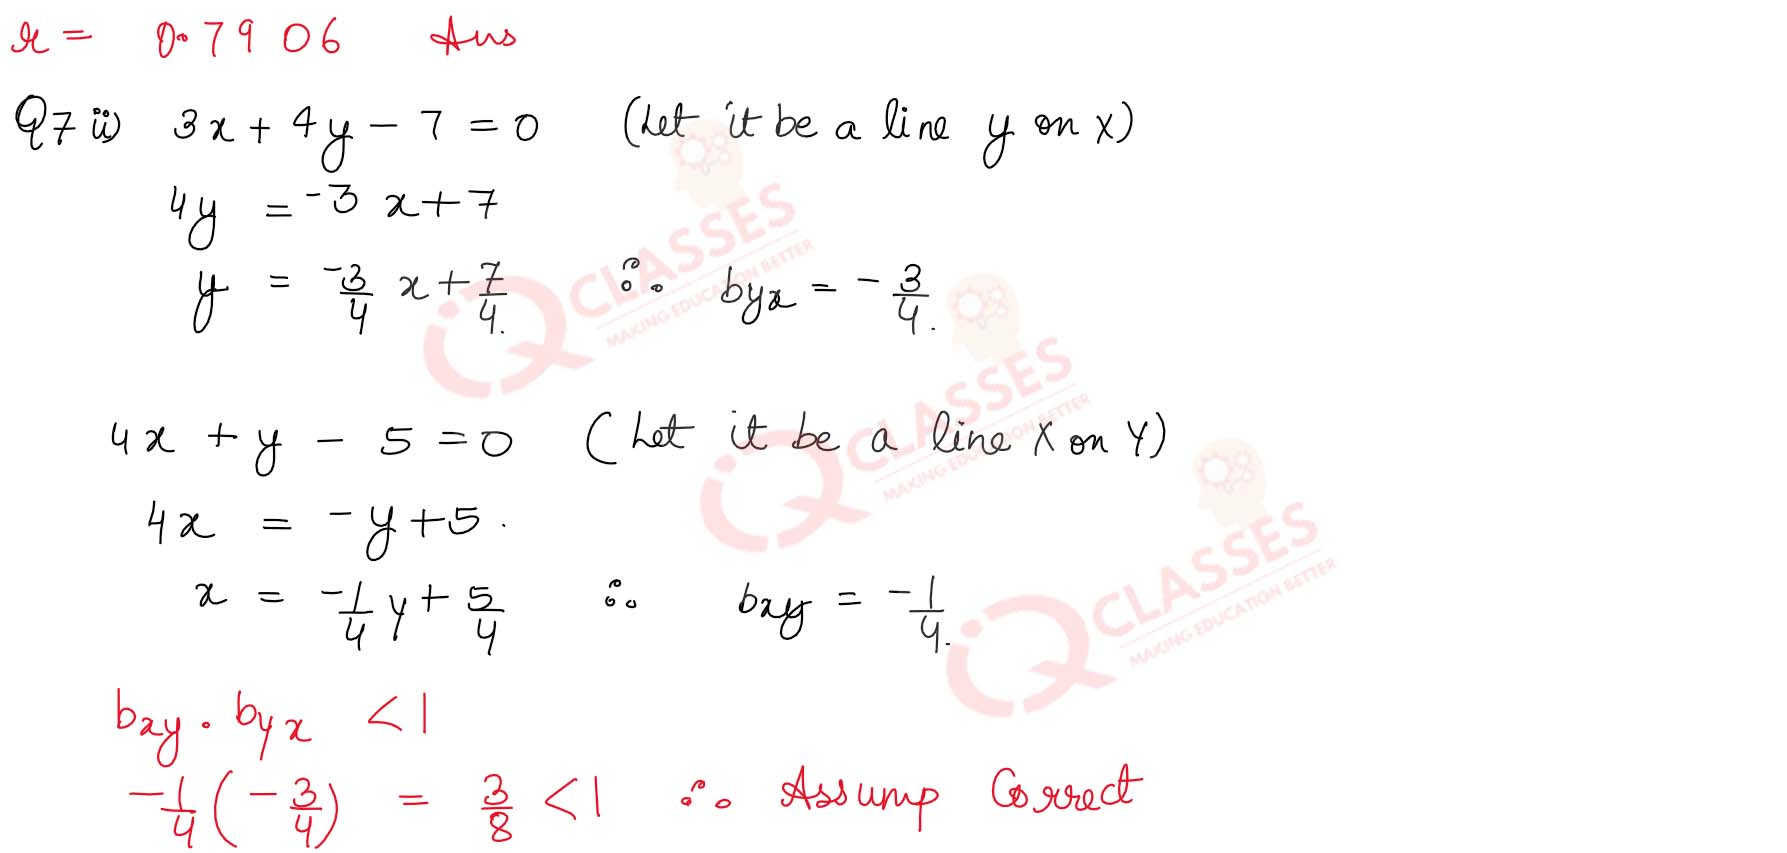 r = 0.7906 Ans
Q7 ii) 3x + 4y - 7 = 0 (Let it be a line y on x)
4y = -3 x + 7
y = -3/4 x + 7/4. ∴ byx = - 3/4.
4x + y - 5 = 0 (Let it be a line X on Y)
4x = -y + 5.
x = -1/4 y + 5/4 ∴ bxy = -1/4.
bxy . byx < 1
-1/4 (-3/4) = 3/8 < 1 ∴ Assump Correct
iQ CLASSES
MAKING EDUCATION BETTER
iQ CLASSES
MAKING EDUCATION BETTER
iQ CLASSES
MAKING EDUCATION BETTER